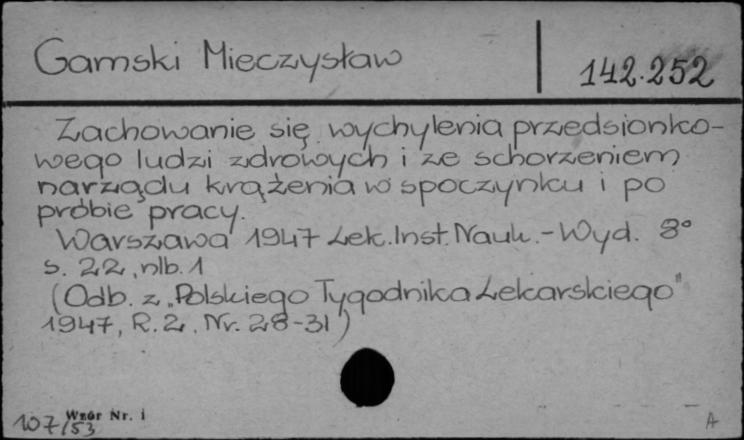 Gamski Mieczysław
142.252
Zachowanie się wychylenia przedsionko-
wego ludzi zdrowych i ze schorzeniem
narządu krążenia w spoczynku i po
próbie pracy.
Warszawa 1947 Lek.Inst.Nauk.-Wyd. 8°
s. 22, nlb. 1
(Odb. z „Polskiego Tygodnika Lekarskiego"
1947, R.2, Nr. 28-31)
Wzór Nr. 1
107/53
A